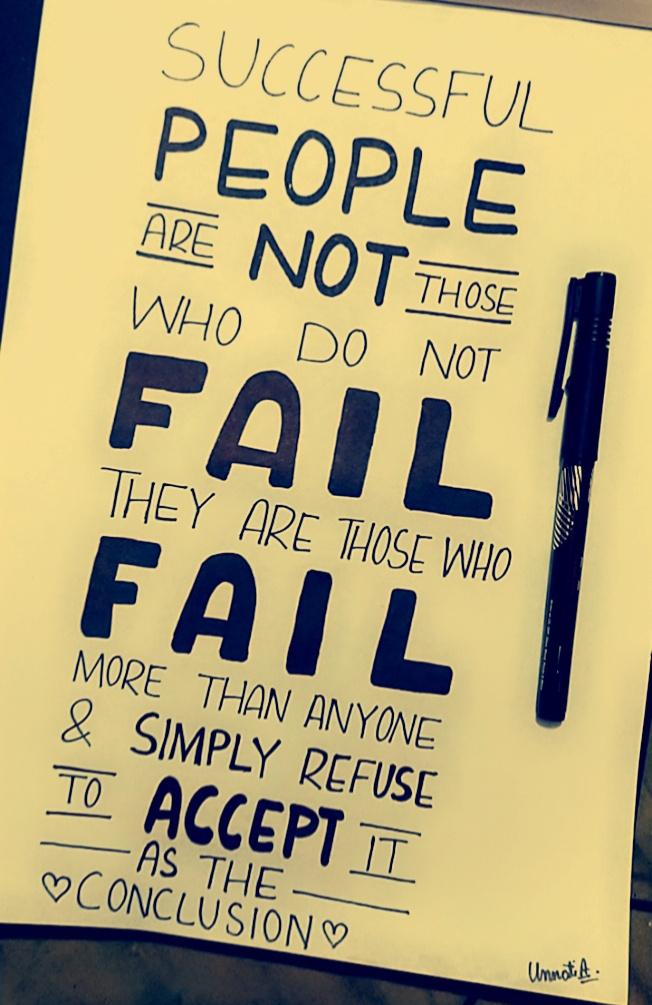 SUCCESSFUL
PEOPLE
ARE NOT THOSE
WHO DO NOT
FAIL
THEY ARE THOSE WHO
FAIL
MORE THAN ANYONE
& SIMPLY REFUSE
TO ACCEPT IT
AS THE
♡CONCLUSION♡
Unnati A.